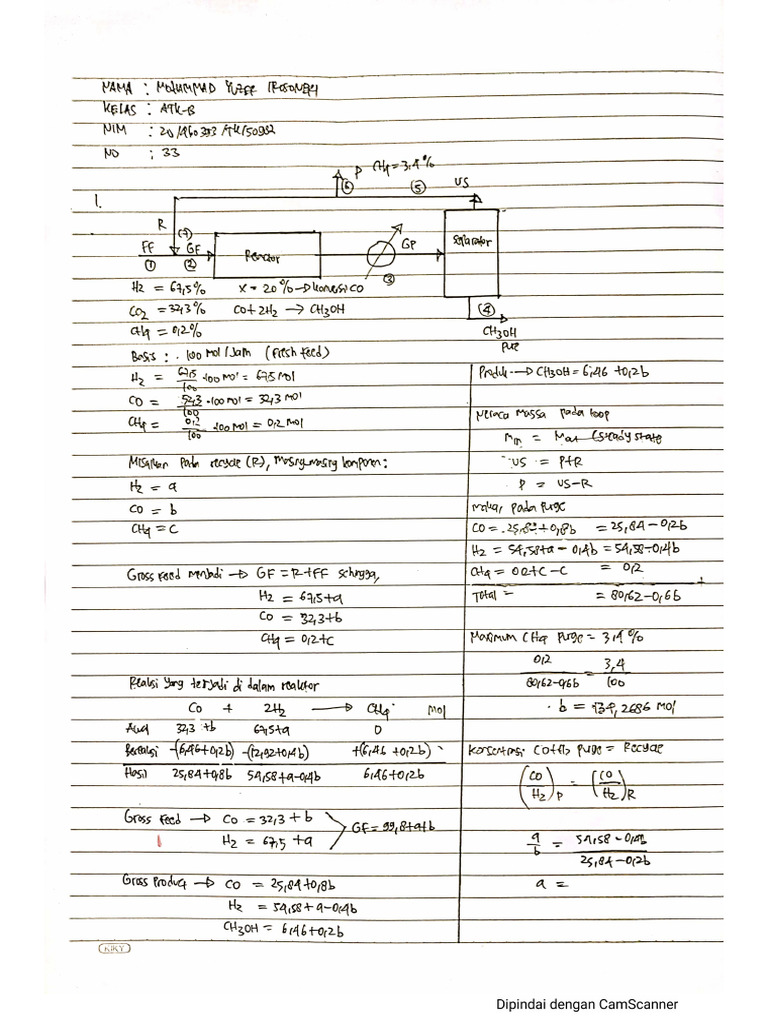 NAMA :
KELAS : ATK-B
NIM : 20/460333/TK/50922
NO : 33
P CH4 = 3,4%
6 5 US
1.
R
(7)
FF GF GP
1 2 Reaktor 3 Separator
H2 = 67,5% X = 20% → konversi CO 4
CO2 = 32,3% CO + 2H2 → CH3OH CH3OH
CH4 = 0,2% pure
Basis : 100 mol/jam (Fresh feed)
H2 = 67,5/100 · 100 mol = 67,5 mol
CO = 32,3/100 · 100 mol = 32,3 mol
CH4 = 0,2/100 · 100 mol = 0,2 mol
Misalkan pada recycle (R), masing-masing komponen:
H2 = a
CO = b
CH4 = C
Gross feed menjadi → GF = R+FF sehingga,
H2 = 67,5+a
CO = 32,3+b
CH4 = 0,2+C
Reaksi yang terjadi di dalam reaktor
CO + 2H2 → CH4 mol
Awal 32,3 + b 67,5+a 0
Bereaksi -(6,46+0,2b) -(12,92+0,4b) +(6,46 + 0,2b)
Hasil 25,84+0,8b 54,58+a-0,4b 6,46+0,2b
Gross Feed → CO = 32,3 + b
H2 = 67,5 + a
GF = 99,8+a+b
Gross product → CO = 25,84+0,8b
H2 = 54,58 + a -0,4b
CH3OH = 6,46+0,2b
Produk → CH3OH = 6,46 + 0,2b
Neraca Massa pada loop
Min = Mout (Steady state
US = P+R
P = US-R
maka, pada Purge
CO = 25,84+0,8b = 25,84-0,2b
H2 = 54,58+a - 0,4b = 54,58-0,4b
CH4 = 0,2+C - C = 0,2
+
Total = = 80,62-0,6b
Maximum CH4 Purge = 3,4%
0,2/80,62-0,6b = 3,4/100
b = 134,2686 mol
Konsentrasi CO+H2 Purge = Recycle
(CO/H2)P = (CO/H2)R
a/b = 54,58 - 0,4b/25,84 - 0,2b
a =
KIKY
Dipindai dengan CamScanner